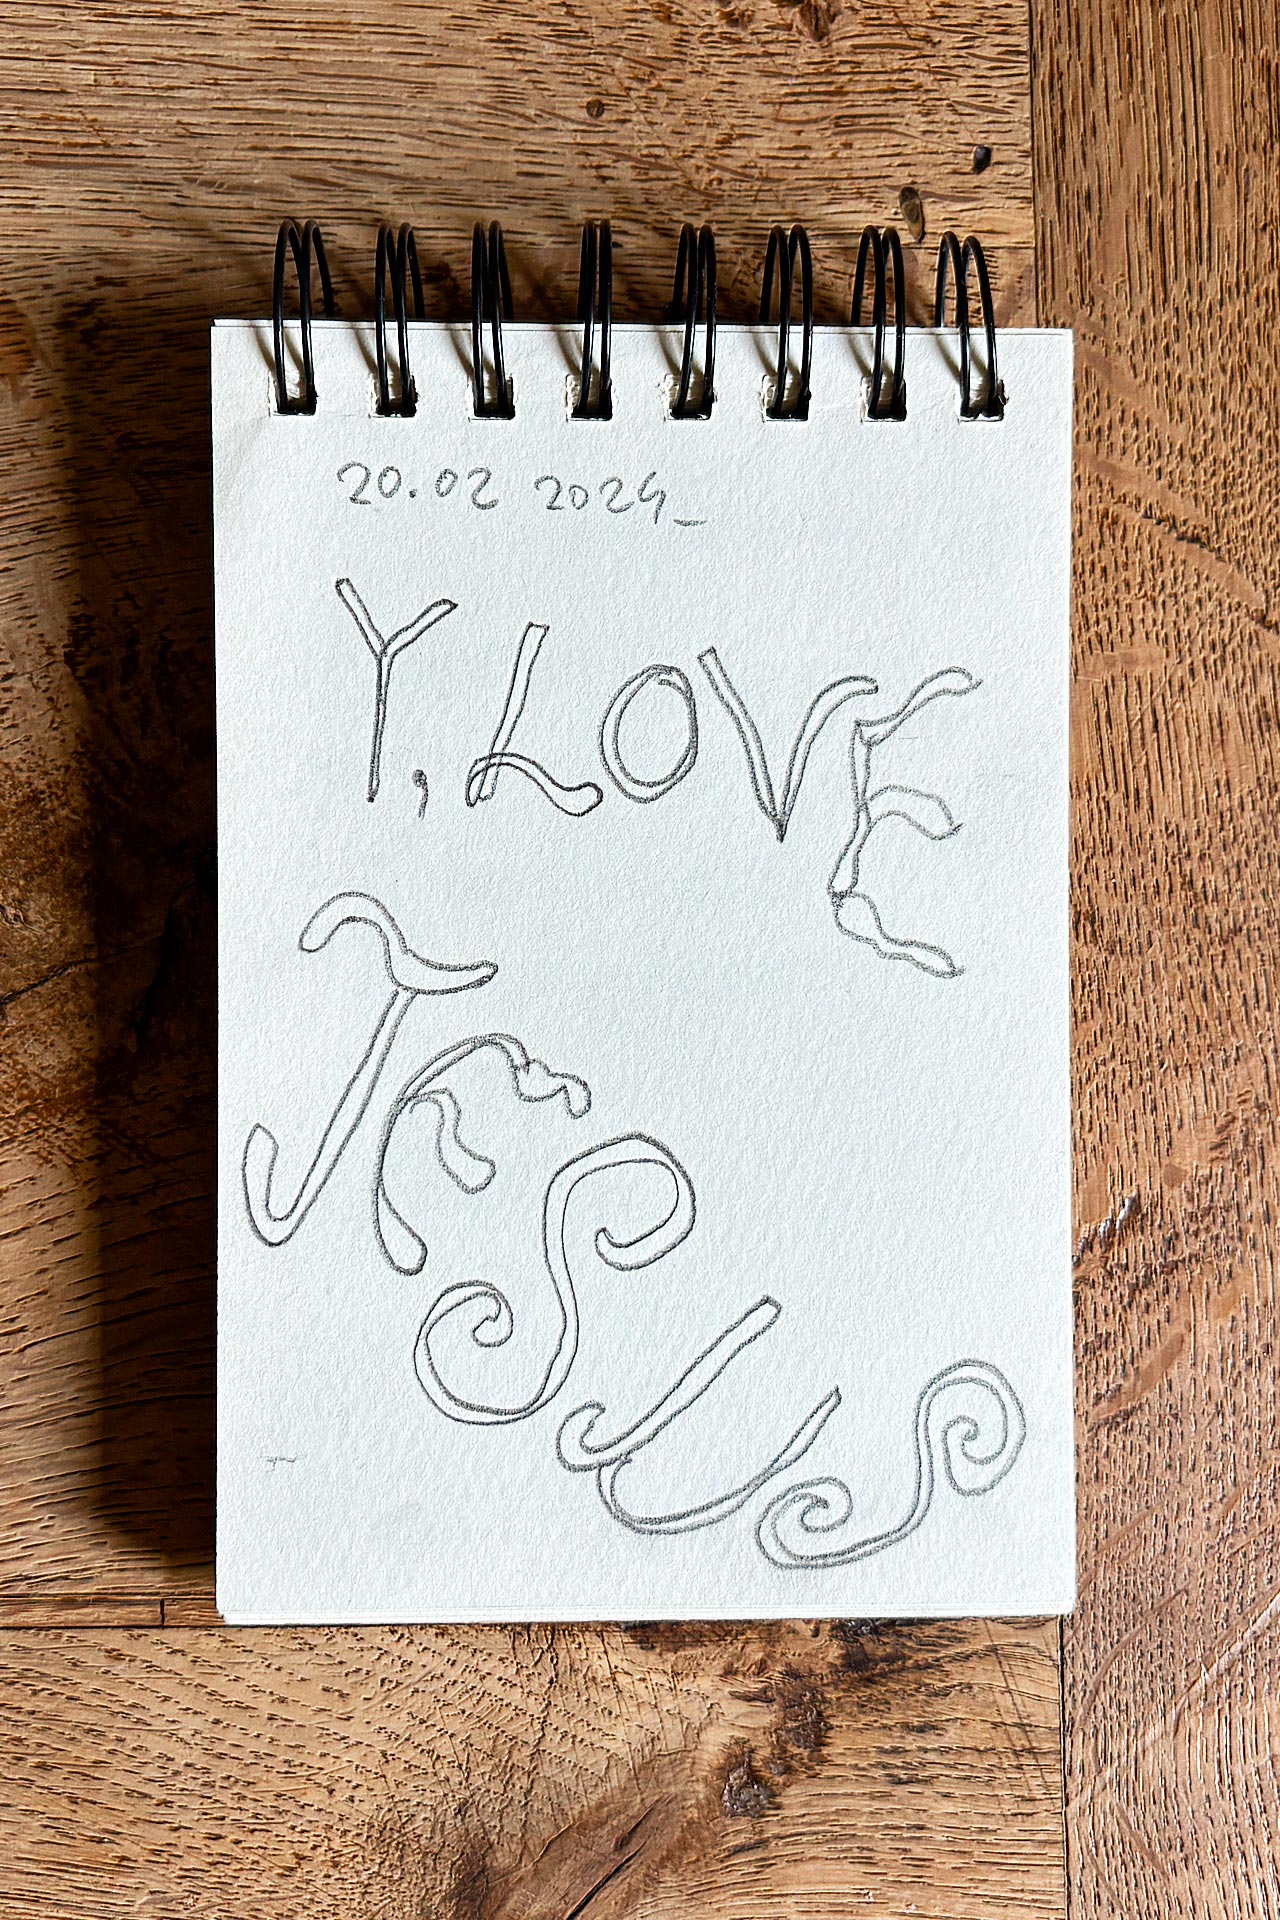 20.02 2024_
Y, LOVE
JESUS